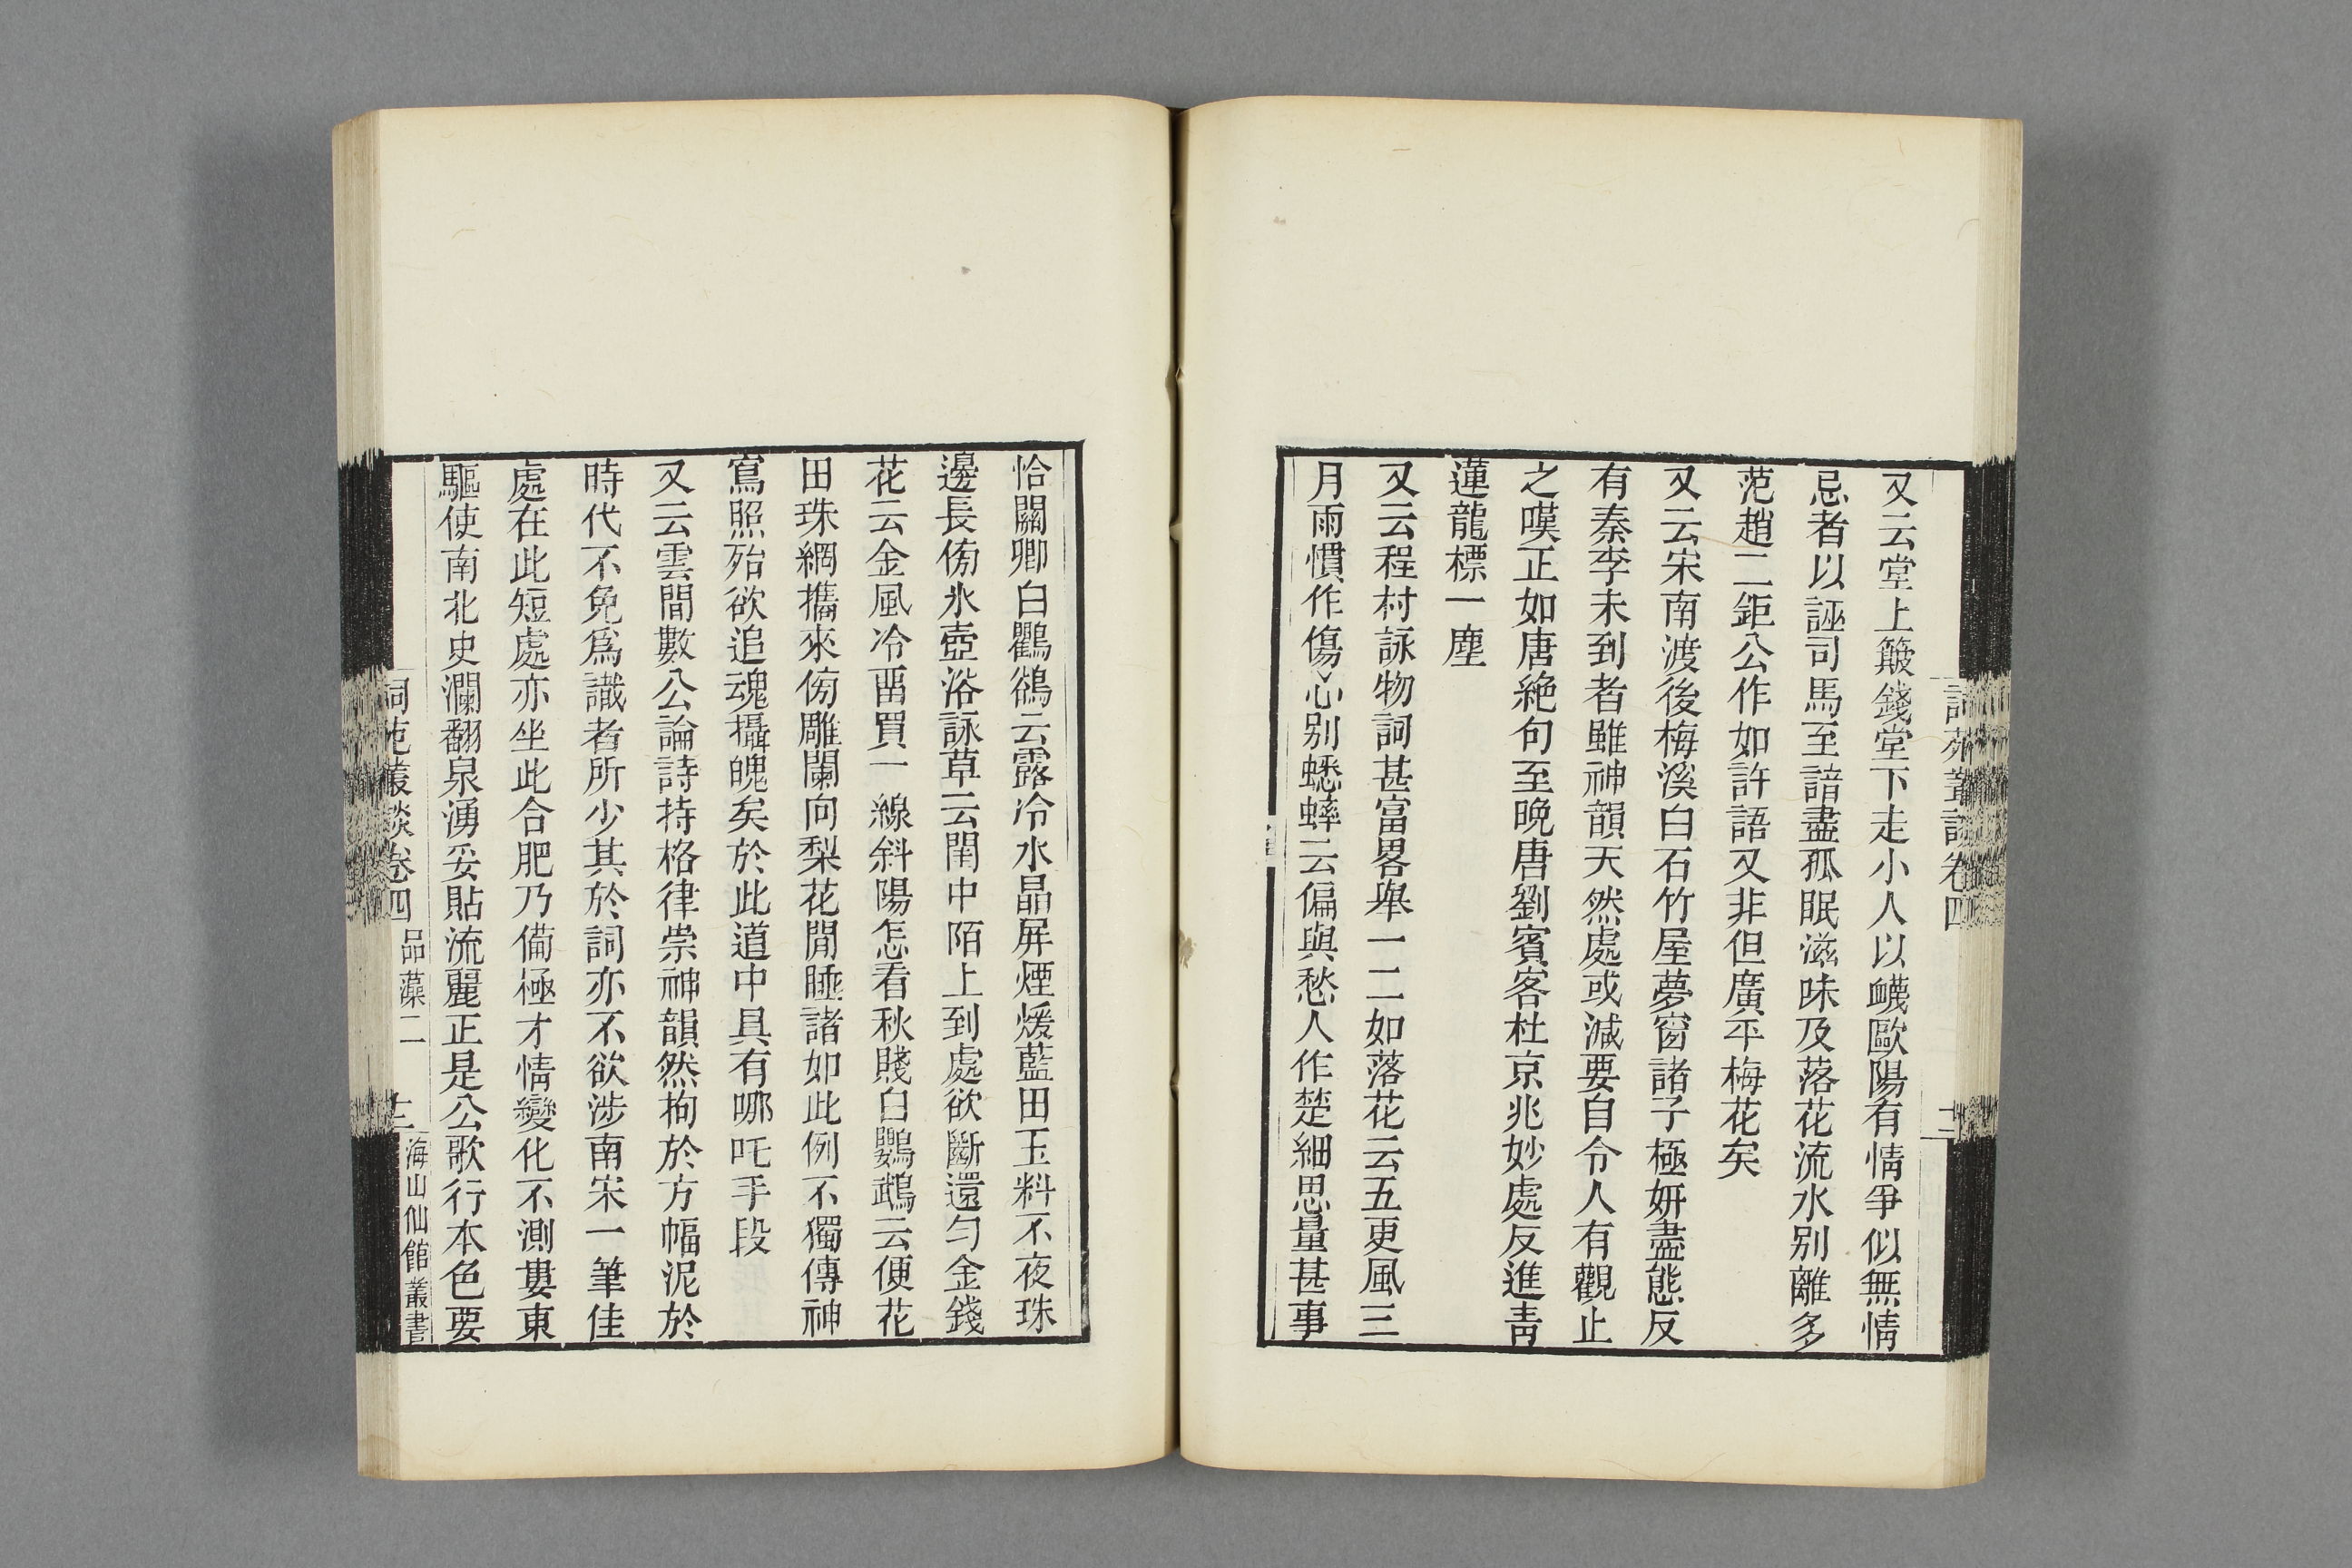 又云堂上簸錢堂下走小人以衊歐陽有情爭似無情
忌者以誣司馬至諳盡孤眠滋味及落花流水別離多
范趙二鉅公作如許語又非但廣平梅花矣
又云宋南渡後梅溪白石竹屋夢窗諸子極妍盡態反
有秦李未到者雖神韻天然處或減要自令人有觀止
之嘆正如唐絶句至晚唐劉賓客杜京兆妙處反進青
蓮龍標一塵
又云程村詠物詞甚富畧舉一二如落花云五更風三
月雨慣作傷心別蟋蟀云偏與愁人作楚細思量甚事
恰關卿白鸜鵒云露冷水晶屏煙煖藍田玉料不夜珠
邊長傍氷壺浴詠草云閨中陌上到處欲斷還勻金錢
花云金風冷畱買一線斜陽怎看秋賤白鸚鵡云便花
田珠網攜來傍雕闌向梨花閒睡諸如此例不獨傳神
寫照殆欲追魂攝魄矣於此道中具有哪吒手段
又云雲間數公論詩持格律崇神韻然拘於方幅泥於
時代不免爲識者所少其於詞亦不欲涉南宋一筆佳
處在此短處亦坐此合肥乃備極才情變化不測婁東
驅使南北史瀾翻泉湧妥貼流麗正是公歌行本色要
詞苑叢談卷四 品藻二 十二 海山仙館叢書